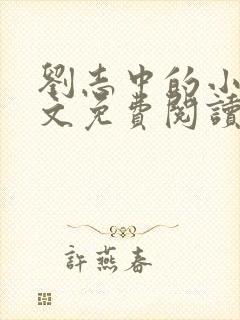 劉志中的小
文免費閱讀
許燕春